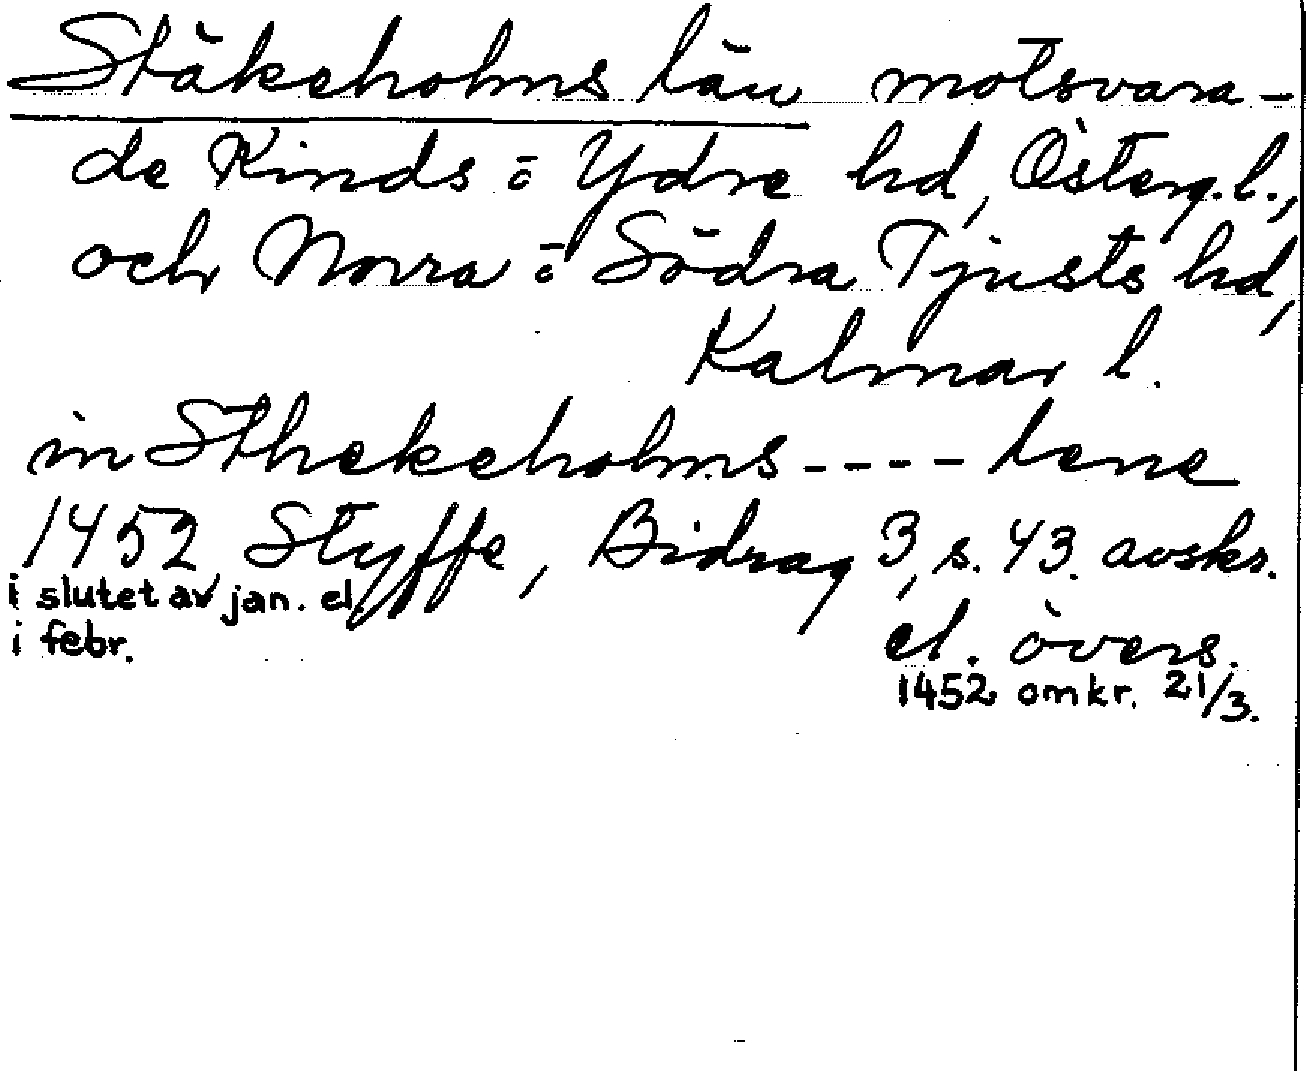 Stäkeholms län motsvara-
de Kinds o Ydre hd, Österg. l.,
och Norra o Södra Tjusts hd,
Kalmar l.
in Sthekeholms - - - - lene
1452 Styffe, Bidrag 3, s. 43. avskr.
i slutet av jan. el
i febr.
el. övers.
1452 omkr. 21/3.